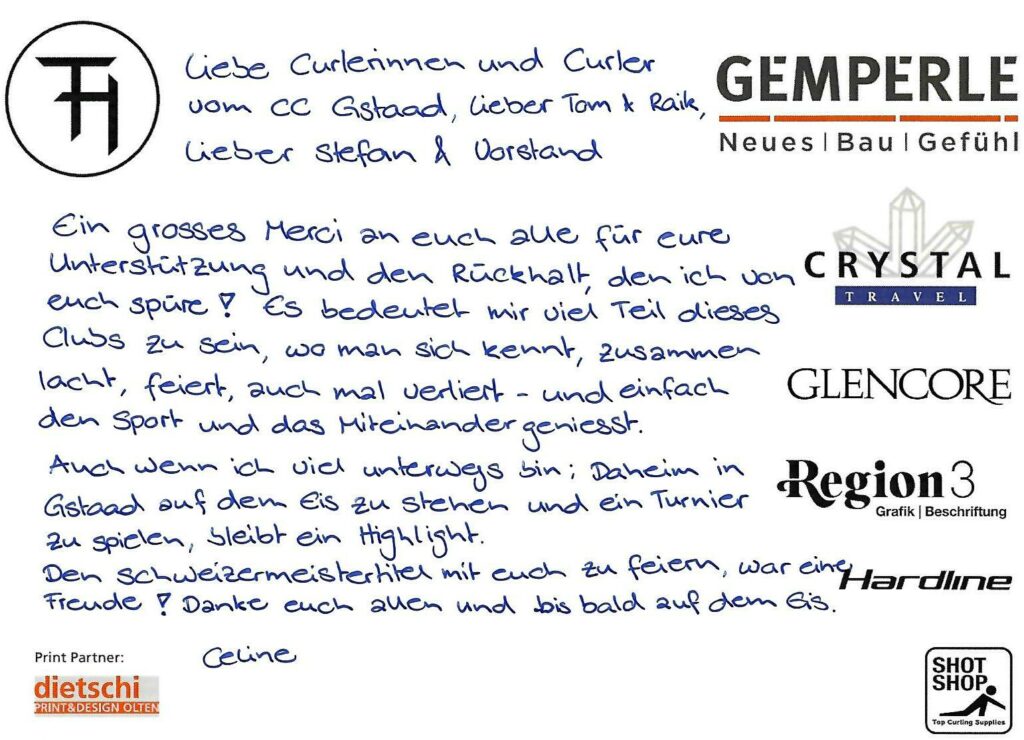 TH
Liebe Curlerinnen und Curler
vom CC Gstaad, Lieber Tom & Raik,
Lieber Stefan & Vorstand
GEMPERLE
Neues | Bau | Gefühl
Ein grosses Merci an euch alle für eure
Unterstützung und den Rückhalt, den ich von
euch spüre! Es bedeutet mir viel Teil dieses
Clubs zu sein, wo man sich kennt, zusammen
lacht, feiert, auch mal verliert - und einfach
den Sport und das Miteinander geniesst.
Auch wenn ich viel unterwegs bin; Daheim in
Gstaad auf dem Eis zu stehen und ein Turnier
zu spielen, bleibt ein Highlight.
Den Schweizermeistertitel mit euch zu feiern, war eine
Freude! Danke euch allen und bis bald auf dem Eis.
Celine
CRYSTAL
TRAVEL
GLENCORE
Region3
Grafik | Beschriftung
Hardline
Print Partner:
dietschi
PRINT&DESIGN OLTEN
SHOT
SHOP
Top Curling Supplies